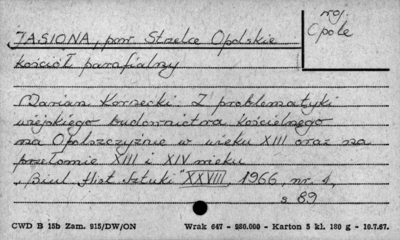 woj.
Opole
JASIONA, pow. Strzelce Opolskie
kościół parafialny
Marian Kornecki: Z problematyki
wiejskiego budownictwa kościelnego
na Opolszczyźnie w wieku XIII oraz na
przełomie XIII i XIV wieku
"Biul. Hist. Sztuki" XXVIII, 1966, nr. 1,
s. 89
CWD B 15b Zam. 915/DW/ON Wrak 647 - 250.000 - Karton 5 kl. 180 g - 10.7.67.